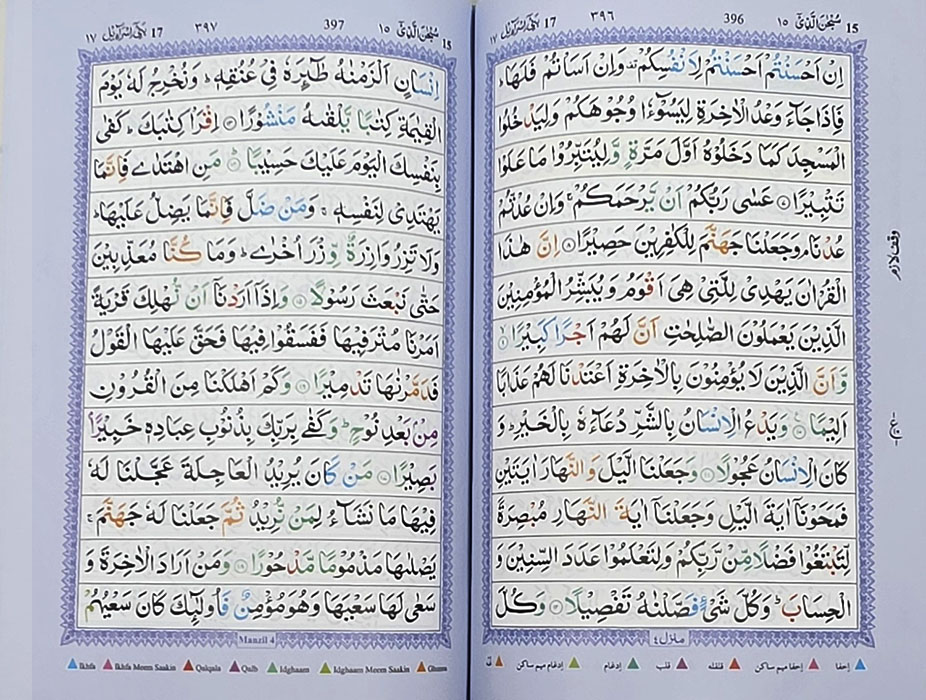 15 سُبْحٰنَ الَّذِیْۤ ١٥ 396 ٣٩٦ 17 بَنِیْۤ اِسْرَآءِیْل ١٧
اِنْ اَحْسَنْتُمْ اَحْسَنْتُمْ لِاَنْفُسِكُمْ ۫ وَاِنْ اَسَاْتُمْ فَلَهَا ؕ
فَاِذَا جَآءَ وَعْدُ الْاٰخِرَةِ لِیَسُوْٓءٗا وُجُوْهَكُمْ وَلِیَدْخُلُوا
الْمَسْجِدَ كَمَا دَخَلُوْهُ اَوَّلَ مَرَّةٍ وَّلِیُتَبِّرُوْا مَا عَلَوْا
تَتْبِیْرًا ۝ عَسٰی رَبُّكُمْ اَنْ یَّرْحَمَكُمْ ۚ وَاِنْ عُدْتُّمْ
عُدْنَا ۘ وَجَعَلْنَا جَهَنَّمَ لِلْكٰفِرِیْنَ حَصِیْرًا ۝ اِنَّ هٰذَا
الْقُرْاٰنَ یَهْدِیْ لِلَّتِیْ هِیَ اَقْوَمُ وَ یُبَشِّرُ الْمُؤْمِنِیْنَ
الَّذِیْنَ یَعْمَلُوْنَ الصّٰلِحٰتِ اَنَّ لَهُمْ اَجْرًا كَبِیْرًا ۝
وَّاَنَّ الَّذِیْنَ لَا یُؤْمِنُوْنَ بِالْاٰخِرَةِ اَعْتَدْنَا لَهُمْ عَذَابًا
اَلِیْمًا ۝ وَیَدْعُ الْاِنْسَانُ بِالشَّرِّ دُعَآءَهٗ بِالْخَیْرِ ؕ وَ
كَانَ الْاِنْسَانُ عَجُوْلًا ۝ وَجَعَلْنَا الَّیْلَ وَالنَّهَارَ اٰیَتَیْنِ
فَمَحَوْنَاۤ اٰیَةَ الَّیْلِ وَجَعَلْنَاۤ اٰیَةَ النَّهَارِ مُبْصِرَةً
لِّتَبْتَغُوْا فَضْلًا مِّنْ رَّبِّكُمْ وَلِتَعْلَمُوْا عَدَدَ السِّنِیْنَ وَ
الْحِسَابَ ؕ وَكُلَّ شَیْءٍ فَصَّلْنٰهُ تَفْصِیْلًا ۝ وَكُلَّ
منزل ٤
إخفا إخفا میم ساكن قلقله قلب إدغام إدغام میم ساكن
وقف لازم
ع
15 سُبْحٰنَ الَّذِیْۤ ١٥ 397 ٣٩٧ 17 بَنِیْۤ اِسْرَآءِیْل ١٧
اِنْسَانٍ اَلْزَمْنٰهُ طٰٓئِرَهٗ فِیْ عُنُقِهٖ ؕ وَنُخْرِجُ لَهٗ یَوْمَ
الْقِیٰمَةِ كِتٰبًا یَّلْقٰىهُ مَنْشُوْرًا ۝ اِقْرَاْ كِتٰبَكَ ؕ كَفٰی
بِنَفْسِكَ الْیَوْمَ عَلَیْكَ حَسِیْبًا ۝ مَنِ اهْتَدٰی فَاِنَّمَا
یَهْتَدِیْ لِنَفْسِهٖ ۚ وَمَنْ ضَلَّ فَاِنَّمَا یَضِلُّ عَلَیْهَا ؕ
وَلَا تَزِرُ وَازِرَةٌ وِّزْرَ اُخْرٰی ؕ وَمَا كُنَّا مُعَذِّبِیْنَ
حَتّٰی نَبْعَثَ رَسُوْلًا ۝ وَاِذَاۤ اَرَدْنَاۤ اَنْ نُّهْلِكَ قَرْیَةً
اَمَرْنَا مُتْرَفِیْهَا فَفَسَقُوْا فِیْهَا فَحَقَّ عَلَیْهَا الْقَوْلُ
فَدَمَّرْنٰهَا تَدْمِیْرًا ۝ وَكَمْ اَهْلَكْنَا مِنَ الْقُرُوْنِ
مِنْۢ بَعْدِ نُوْحٍ ؕ وَكَفٰی بِرَبِّكَ بِذُنُوْبِ عِبَادِهٖ خَبِیْرًۢا
بَصِیْرًا ۝ مَنْ كَانَ یُرِیْدُ الْعَاجِلَةَ عَجَّلْنَا لَهٗ
فِیْهَا مَا نَشَآءُ لِمَنْ نُّرِیْدُ ثُمَّ جَعَلْنَا لَهٗ جَهَنَّمَ ۚ
یَصْلٰىهَا مَذْمُوْمًا مَّدْحُوْرًا ۝ وَمَنْ اَرَادَ الْاٰخِرَةَ وَ
سَعٰی لَهَا سَعْیَهَا وَهُوَ مُؤْمِنٌ فَاُولٰٓئِكَ كَانَ سَعْیُهُمْ
Manzil 4
Ikhfa Ikhfa Meem Saakin Qalqala Qalb Idghaam Idghaam Meem Saakin Ghunna